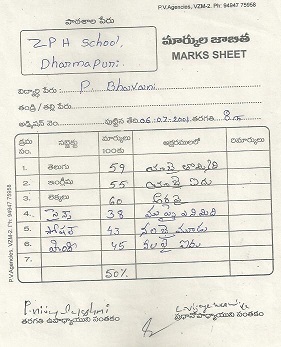 P.V.Agencies, VZM-2. Ph: 94947 75958
పాఠశాల పేరు
Z P H School,
Dharmapuri.
మార్కుల జాబితా
MARKS SHEET
విద్యార్థి పేరు P. Bhavani
తండ్రి / తల్లి పేరు
అడ్మిషన్ నెం. పుట్టిన తేది 06.02.2001 తరగతి 8
క్రమ సం. సబ్జెక్టు మార్కులు 100కు అక్షరములలో రిమార్కులు
1. తెలుగు 59
2. ఇంగ్లీషు 55 యాభై ఐదు
3. లెక్కలు 60 అరవై
4. సైన్స్ 38 ముప్పై ఎనిమిది
5. సోషల్ 43 నలభై మూడు
6. హిందీ 45 నలభై ఐదు
7.
50%
తరగతి ఉపాధ్యాయుని సంతకం ప్రధానోపాధ్యాయుని సంతకం
P.V.Agencies, VZM-2. Ph: 94947 75958